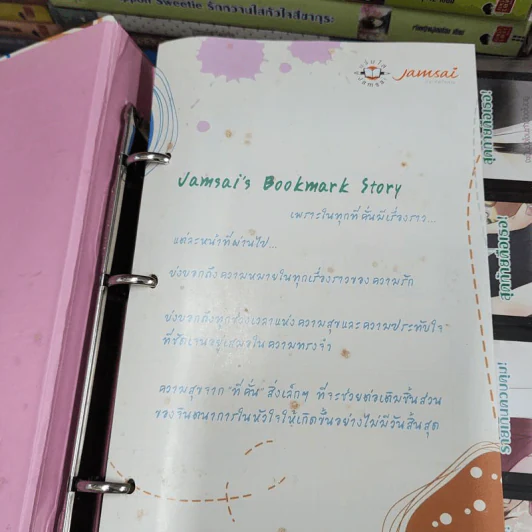 Sweetie รักหวานใสหัวใจสีชากุระ
jamsai
Jamsai's Bookmark Story
เพราะในทุกที่คั่นมีเรื่องราว...
แต่ละหน้าที่ผ่านไป...
บ่งบอกถึงความหมายในทุกเรื่องราวของความรัก
บ่งบอกถึงทุกช่วงเวลาแห่งความสุขและความประทับใจ
ที่ชัดเจนอยู่เสมอในความทรงจำ
ความสุขจาก "ที่คั่น" สิ่งเล็กๆ ที่จะช่วยต่อเติมชิ้นส่วน
ของจินตนาการในหัวใจให้เกิดขึ้นอย่างไม่มีวันสิ้นสุด